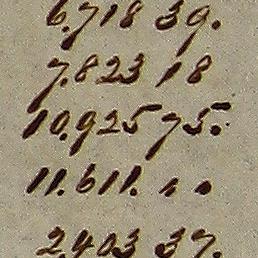 6.718 39.
7.823 18
10.925 75.
11.611. „
2.403 37.